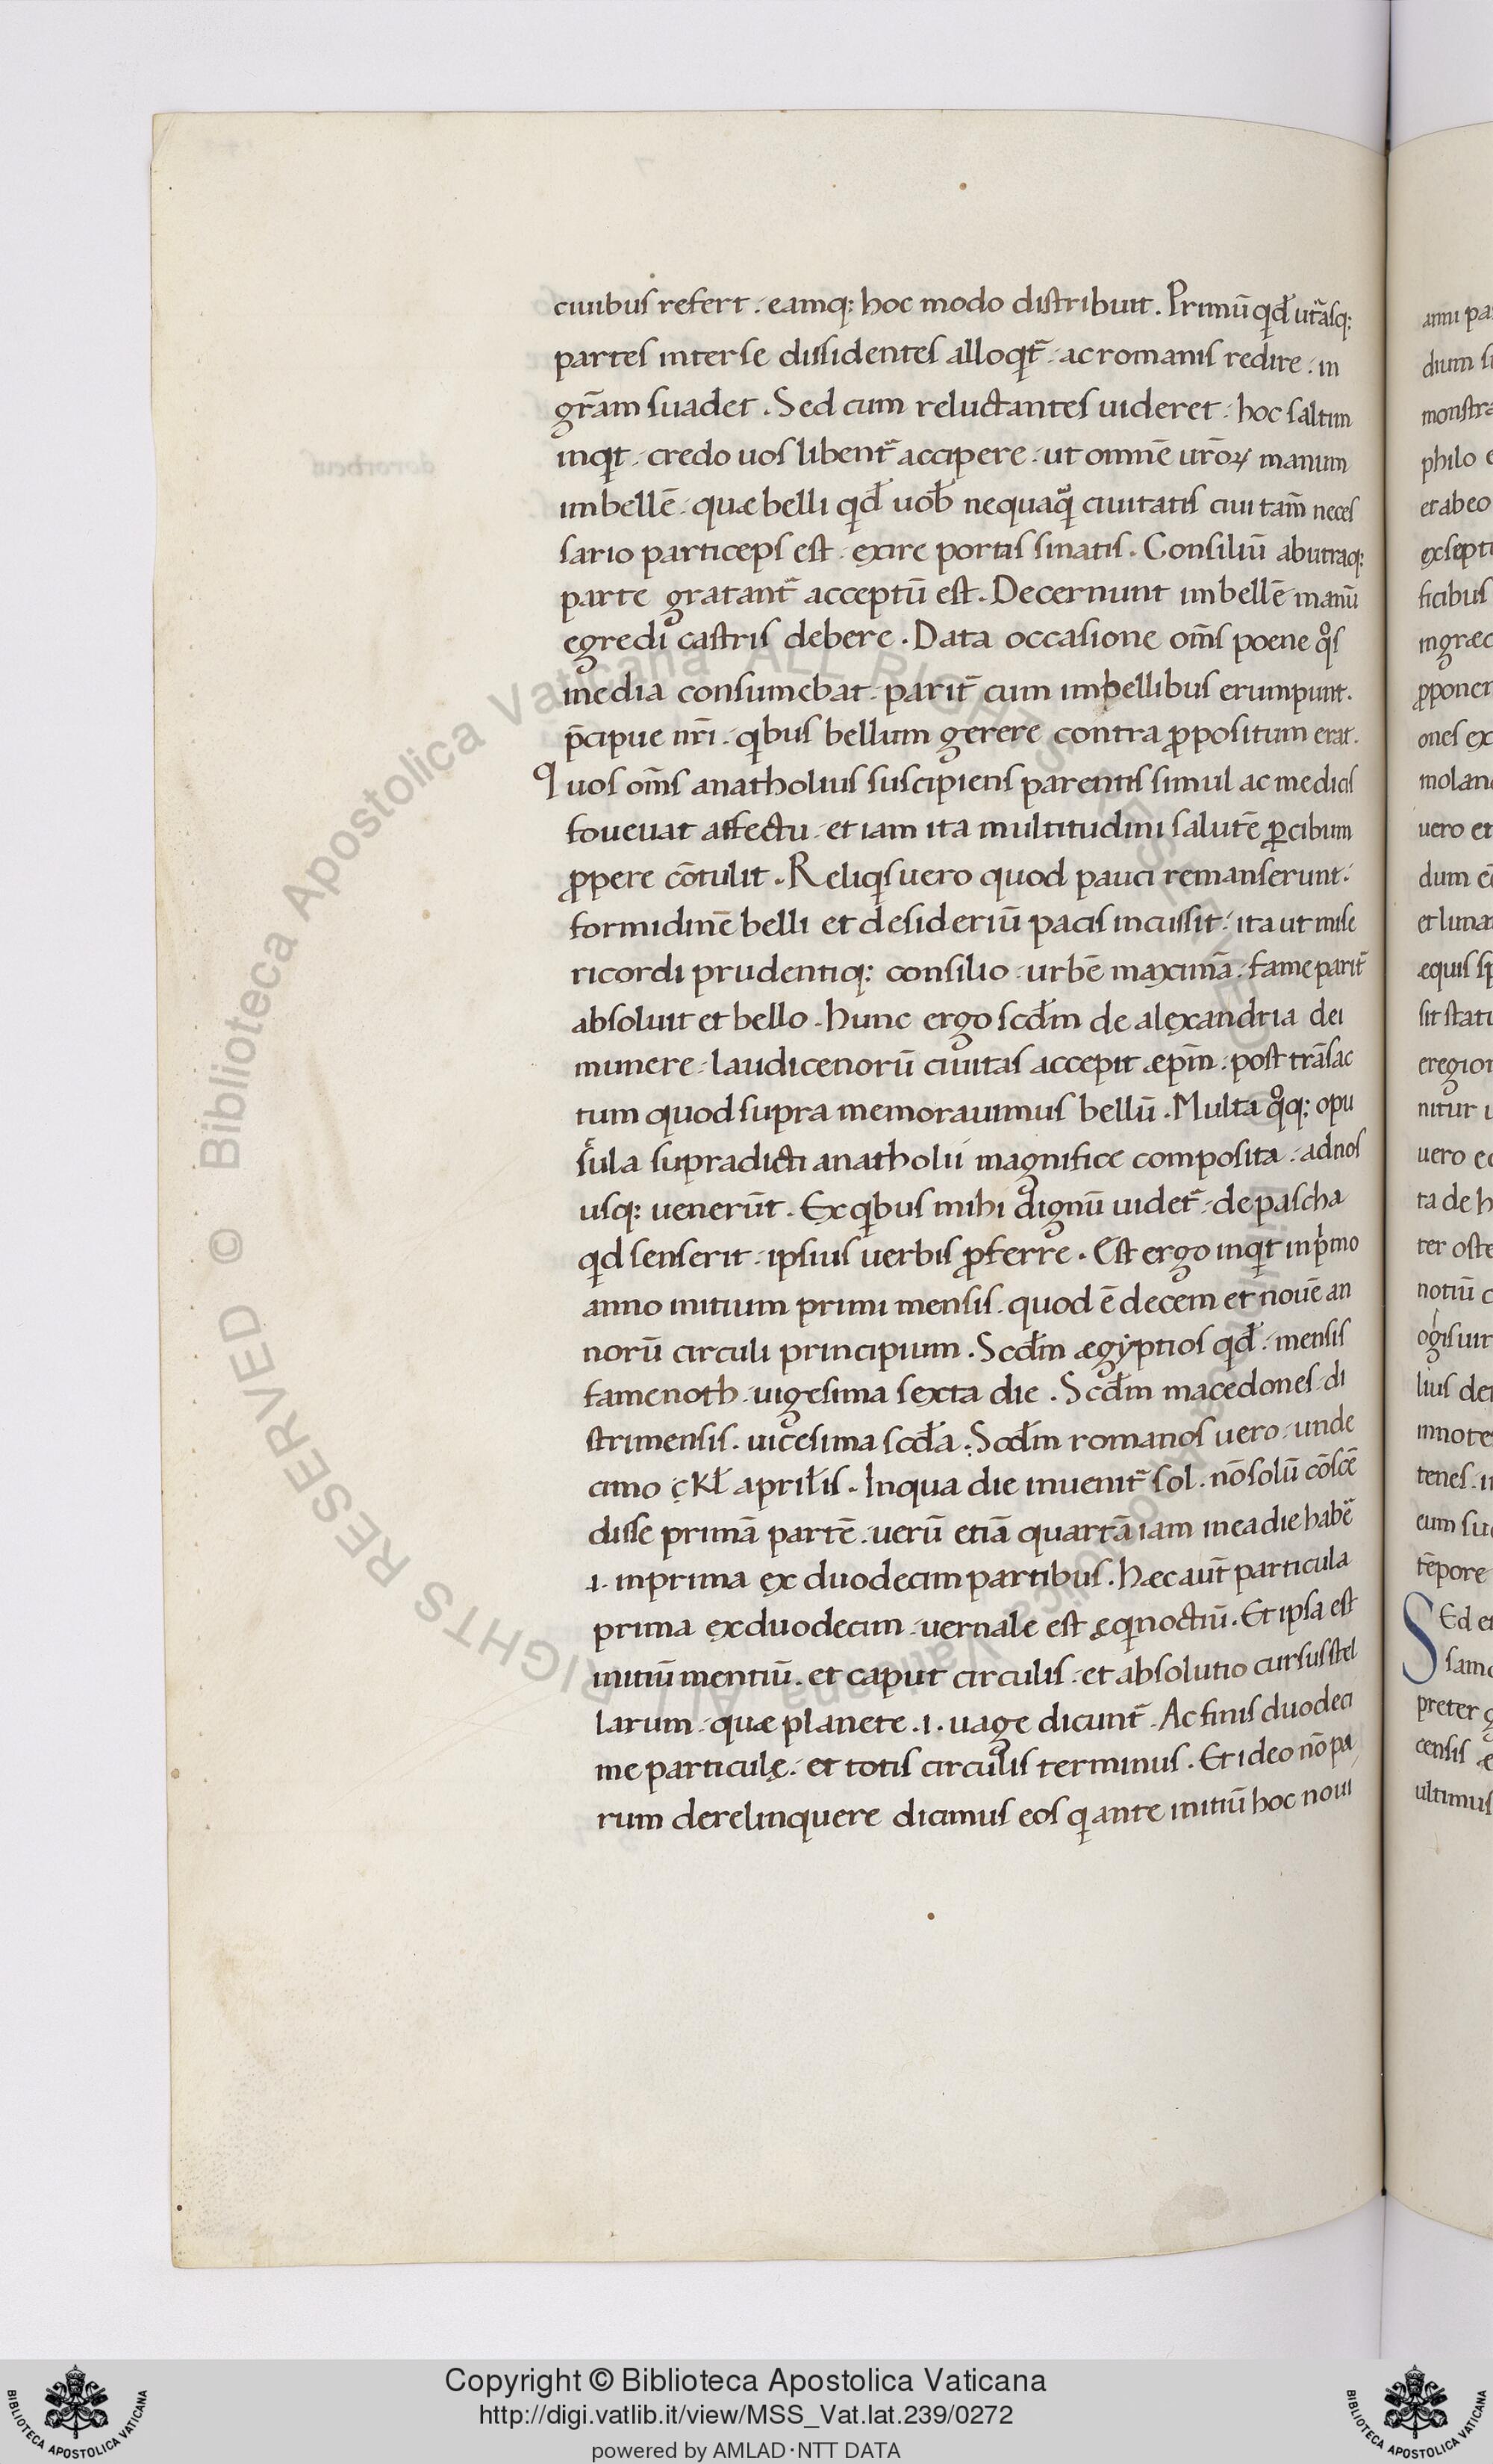 ciuibus refert. eamq; hoc modo distribuit. Primū qid̄ utrāsq;
partes interse dissidentes alloqit̄. ac romanis redire. in
gr̄am suadet. Sed cum reluctantes uideret. hoc saltim
inqit. credo uos libent̄ accipere. ut omnē ur̄oꝝ manum
imbellē. quæ belli qid̄ uob̄ nequaqȝ ciuitatis cui tam̄ neces
sario particeps est. exire portis sinatis. Consiliū abutraq;
parte gratant̄ acceptū est. Decernunt imbellē manū
egredi castris debere. Data occasione om̄s poene qͦs
inedia consumebat. parit̄ cum imbellibus erumpunt.
p̄cipue nr̄i. qibus bellum gerere contra ꝓpositum erat.
Quos om̄s anatholius suscipiens parentis simul ac medicis
foueuat affectu. et iam ita multitudini salutē ꝑcibum
ꝓpere cōtulit. Reliqis uero quod pauci remanserunt.
formidinē belli et desideriū pacis incussit. ita ut mise
ricordi prudentiq; consilio. urbē maximā. fame parit̄
absoluit et bello. hunc ergo scd̄m de alexandria dei
munere. laudicenorū ciuitas accepit æpm̄. post trāsac
tum quod supra memorauimus bellū. Multa qͦq; opu
sula supradicti anatholii magnifice composita. adnos
usq; uenerūt. Ex qibus mihi dignū uidet̄. de pascha
qid senserit. ipsius uerbis ꝓferre. Est ergo inqit inpⁱmo
anno initium primi mensis. quod ē decem et nouē an
norū circuli principium. Scd̄m ægyptios qid̄. mensis
famenoth. uigesima sexta die. Scd̄m macedones. di
strimensis. uicesima scd̄a. Scd̄m romanos uero. unde
cimo ꝫ Kl̄ april̄is. Inqua die inuenit̄ sol. nō solū cōscē
disse primā partē. uerū etiā quartā iam inea die habē
.i. inprima ex duodecim partibus. hæc aut̄ particula
prima exduodecim. uernale est ęqinoctiū. Et ipsa est
initiū mentiū. et caput circulis. et absolutio cursus stel
larum. quæ planete .i. uage dicunt̄. Ac finis duodeci
me particulę. et totis circulis terminus. Et ideo nō pa
rum derelinquere dicimus eos qi ante initiū hoc noui
anni
dium
monstra
philo
et abeo
ficibus
ones ex
uero et
dum
æquis
eregion
nitur
uero
ta de h
ter oste
notiū
lius
innote
tenes
eum
tēpore
Sed
preter
censis
ultimus
Biblioteca Apostolica Vaticana ALL RIGHTS RESERVED ©
Copyright © Biblioteca Apostolica Vaticana
http://digi.vatlib.it/view/MSS_Vat.lat.239/0272
powered by AMLAD·NTT DATA
BIBLIOTECA APOSTOLICA VATICANA
BIBLIOTECA APOSTOLICA VATICANA